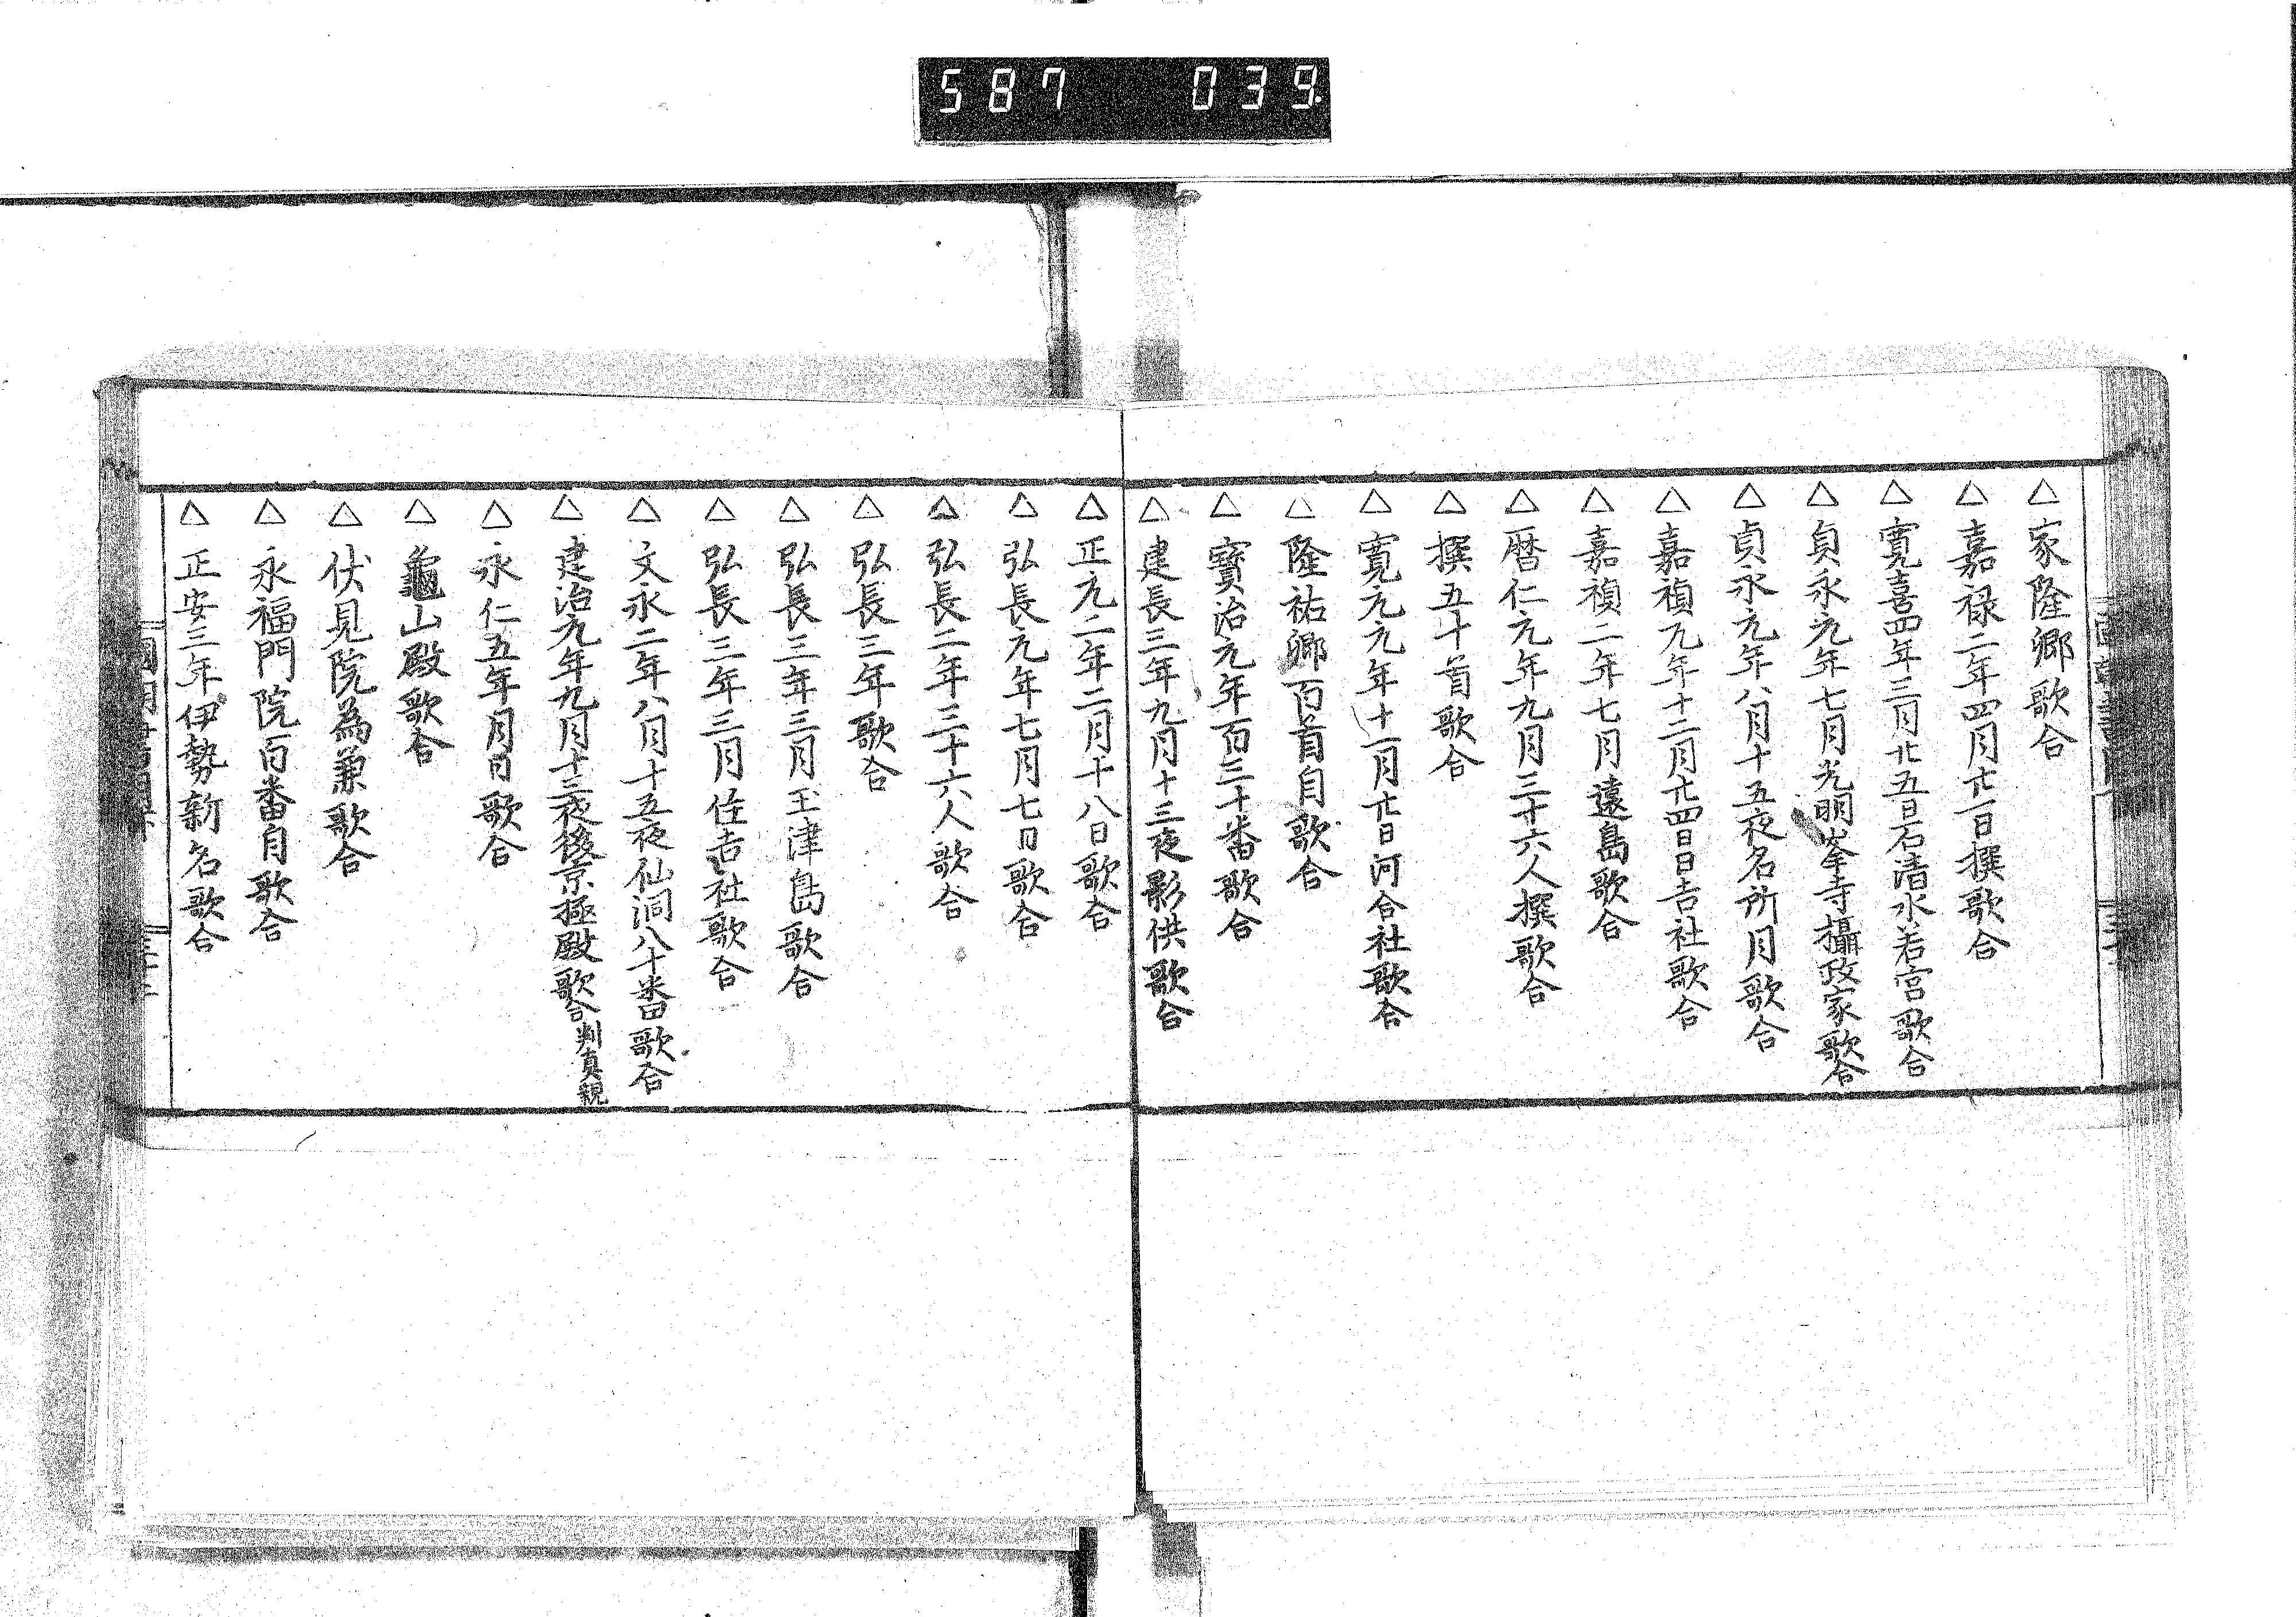 587 039
△家隆卿歌合
△嘉禄二年四月廿一日撰歌合
△寛喜四年三月廿五日石清水若宮歌合
△貞永元年七月光明峯寺攝政家歌合
△貞永元年八月十五夜名所月歌合
△嘉禎元年十二月廿四日日吉社歌合
△嘉禎二年七月遠島歌合
△暦仁元年九月三才六人撰歌合
△撰五十首歌合
△寛元元年十一月廿日河合社歌合
△隆祐卿百首自歌合
△寳治元年百三十番歌合
△建長三年九月十三夜影供歌合
△正元二年二月十八日歌合
△弘長元年七月七日歌合
△弘長二年三十六人歌合
△弘長三年歌合
△弘長三年三月玉津島歌合
△弘長三年三月住吉社歌合
△文永二年八月十五夜仙洞八十番歌合
△建治元年九月十三夜後京極殿歌合判真親
△永仁五年月日歌合
△龜山殿歌合
△伏見院為兼歌合
△永福門院百番自歌合
△正安三年伊勢新名歌合